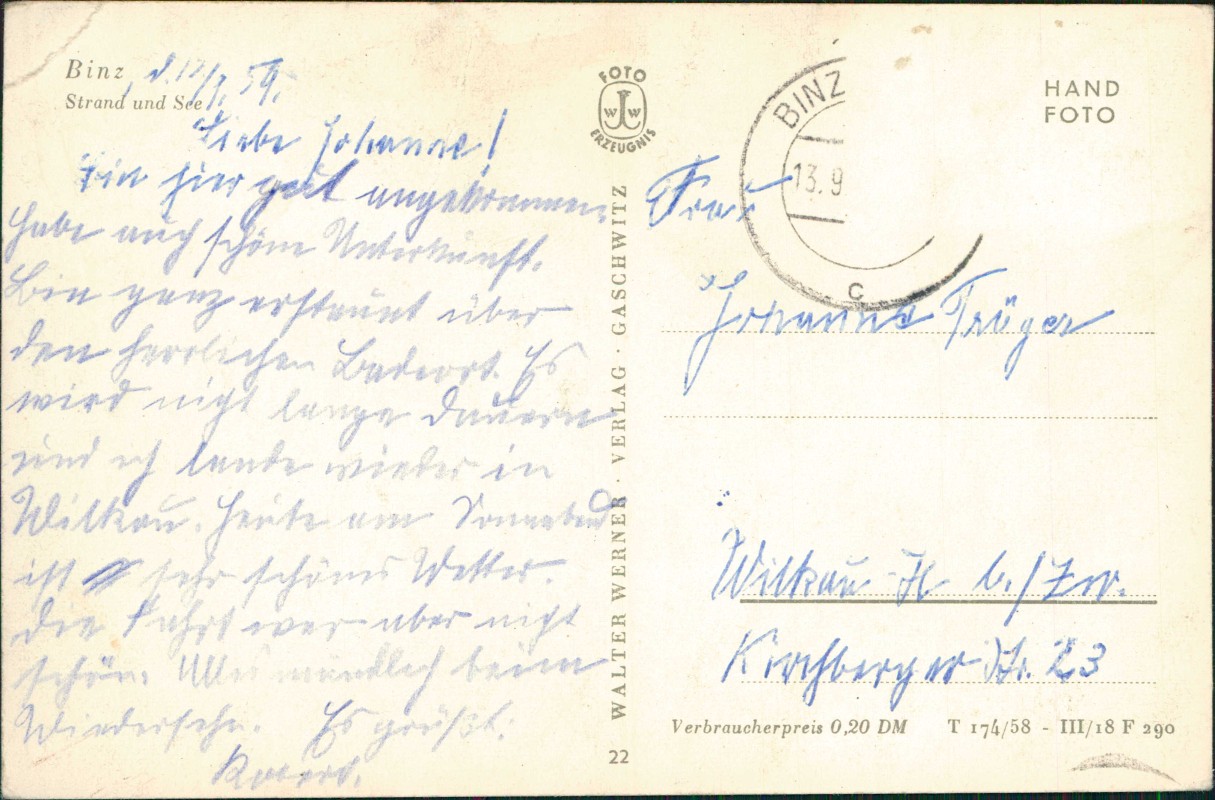 Binz, d. 12/9. 59.
Strand und See
Liebe Johanne!
Bin hier gut angekommen
habe auch schöne Unterkunft.
Bin ganz erstaunt über
den herrlichen Badeort. Es
wird nicht lange dauern
und ich lande wieder in
Wilkau. Heute am Sonnabend
ist sehr schönes Wetter.
Die Fahrt war aber nicht
schön. Alles mündlich beim
Wiedersehn. Es grüßt.
FOTO
WW
ERZEUGNIS
WALTER WERNER · VERLAG · GASCHWITZ
22
HAND
FOTO
BINZ
13.9
c
Frau
Johanne Träger
Wilkau-H. b./Zw.
Kirchberger Str. 23
Verbraucherpreis 0,20 DM T 174/58 - III/18 F 290